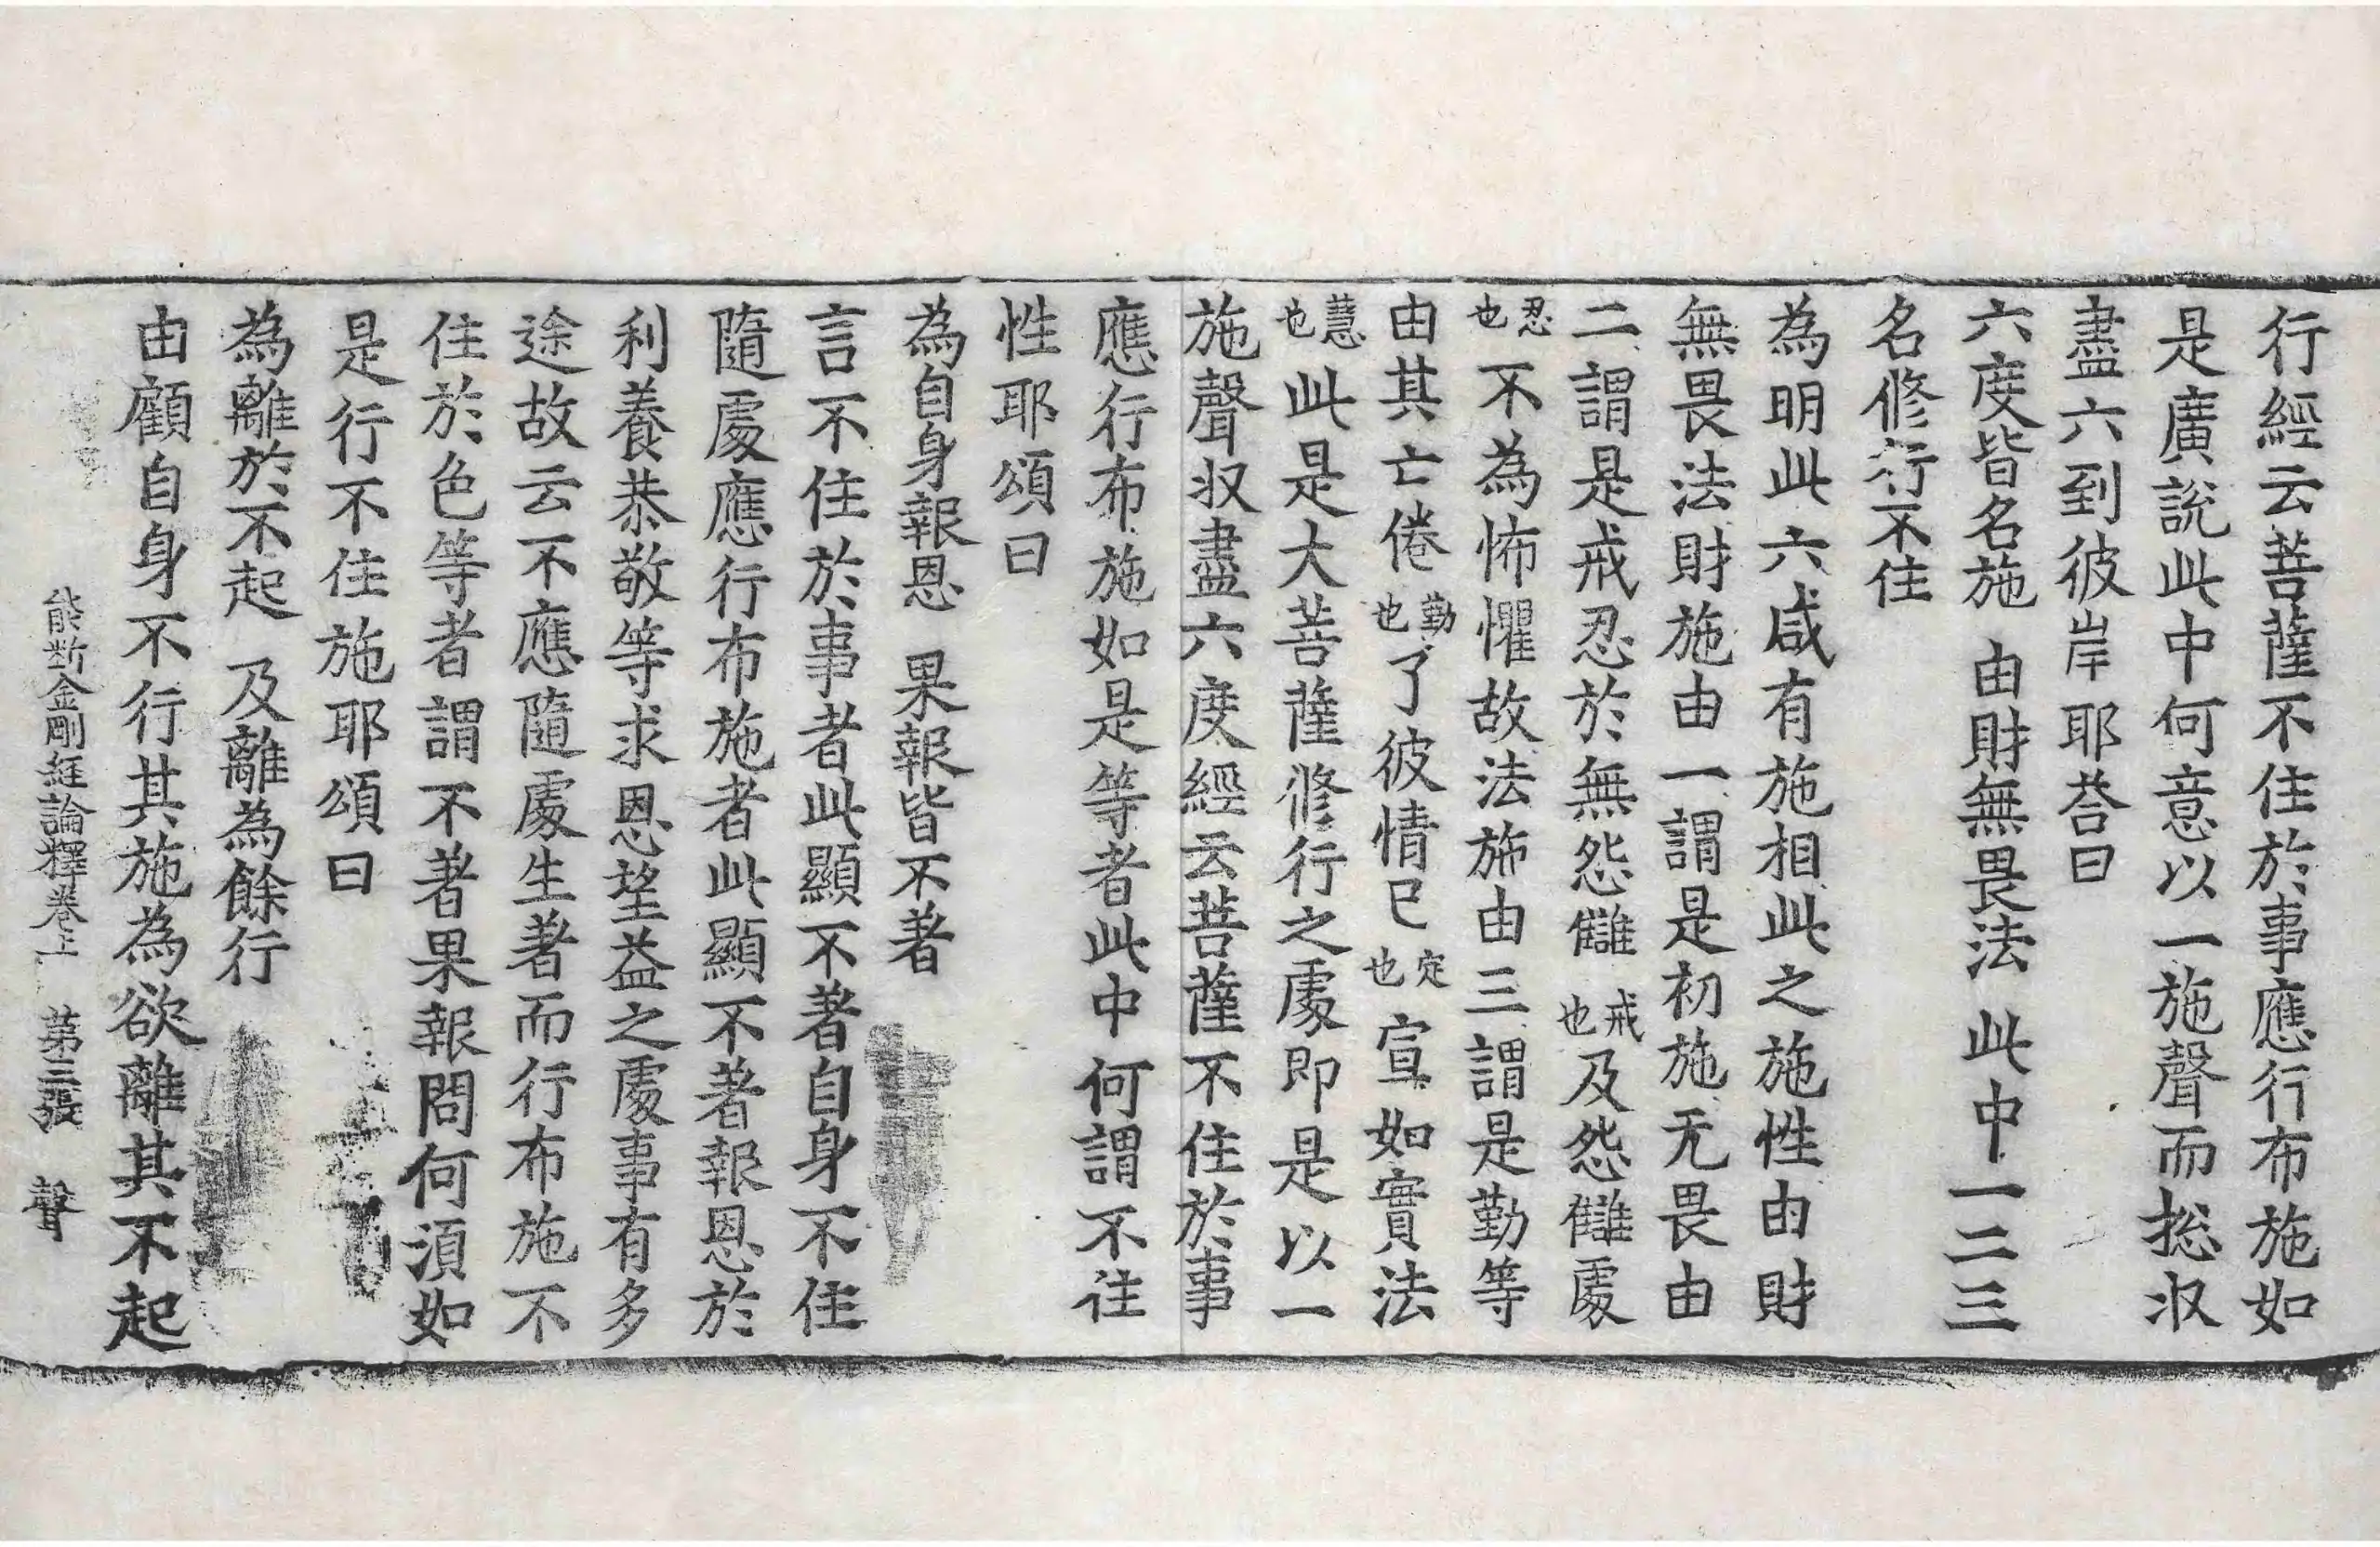 行經云菩薩不住於事應行布施如
是廣說此中何意以一施聲而捴收
盡六到彼岸耶荅曰
六度皆名施　由財無畏法　此中一二三
名修行不住
為明此六咸有施相此之施性由財
無畏法財施由一謂是初施无畏由
二謂是戒忍於無怨讎戒也及怨讎處
忍也不為怖懼故法施由三謂是勤等
由其亡倦勤也了彼情已定也宣如實法
慧也此是大菩薩修行之處即是以一
施聲收盡六度經云菩薩不住於事
應行布施如是等者此中何謂不住
性耶頌曰
為自身報恩　果報皆不著
言不住於事者此顯不著自身不住
隨處應行布施者此顯不著報恩於
利養恭敬等求恩望益之處事有多
途故云不應隨處生著而行布施不
住於色等者謂不著果報問何須如
是行不住施耶頌曰
為離於不起　及離為餘行
由顧自身不行其施為欲離其不起
能断金剛經論釋卷上　第三張　聲